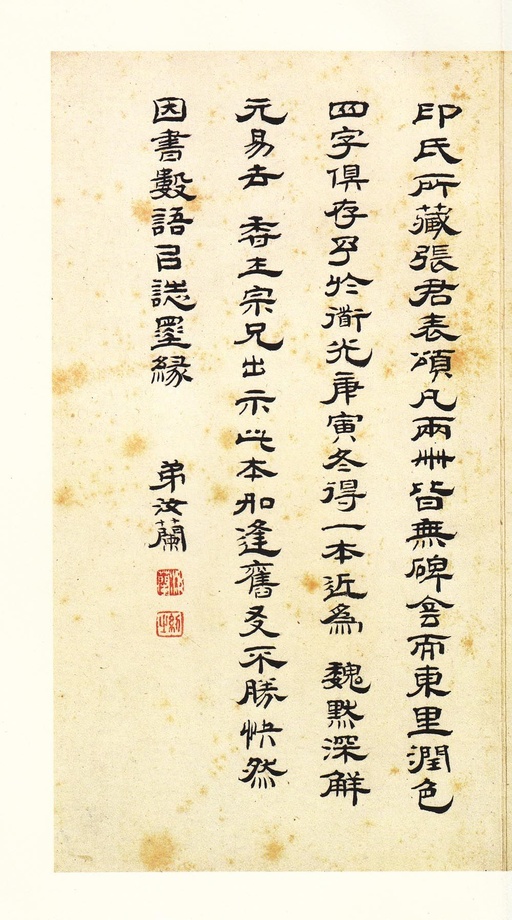 印氏所藏張君表頌凡兩冊皆無碑侌而東里潤色
四字俱存予於衟光庚寅冬得一本近為 魏默深解
元易去 玉宗兄出示此本如逢舊友不勝快然
因書數語㠯誌墨緣 弟汝蘭
汝蘭